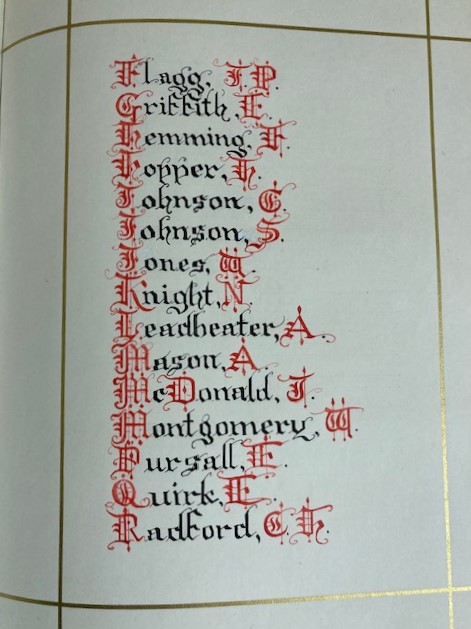 Flagg, J P.
Griffith, E.
Hemming, F.
Hopper, H.
Johnson, G.
Johnson, S.
Jones, W.
Knight, N.
Leadbeater, A.
Mason, A.
McDonald, J.
Montgomery, W.
Pursall, E.
Quirk, E.
Radford, C. H.